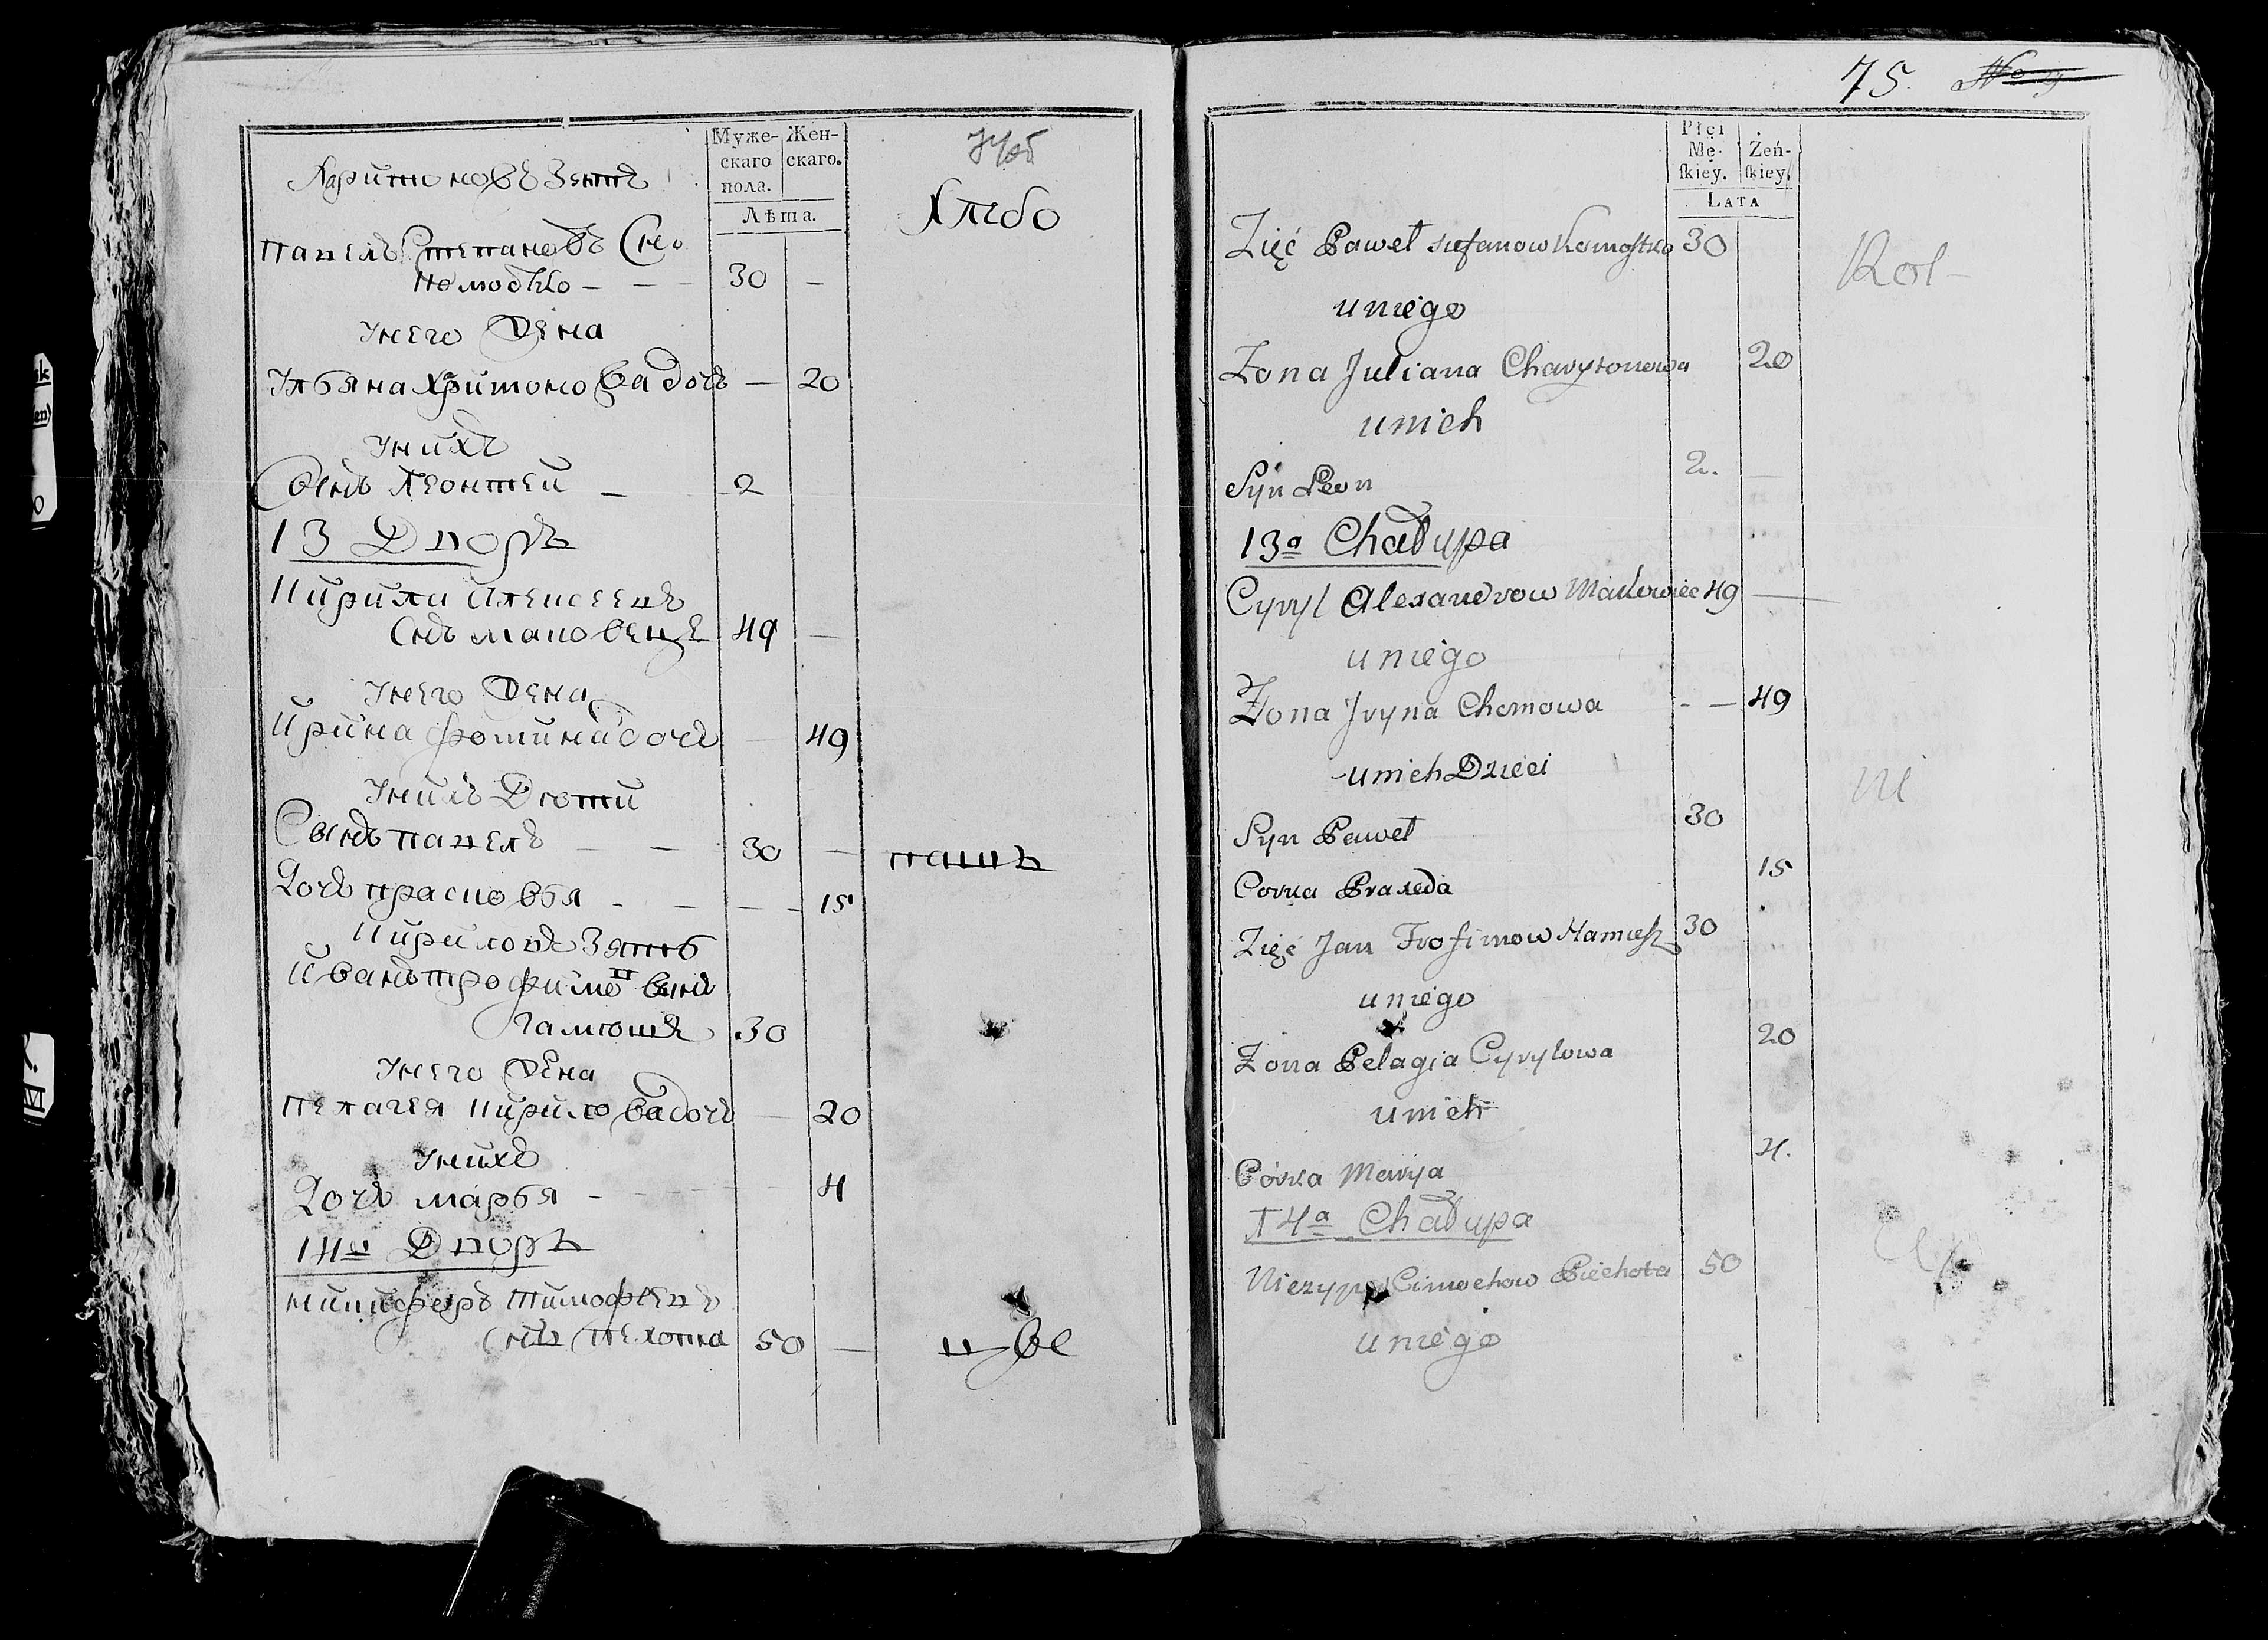 Муже-
скаго
пола.
Жен-
скаго.
Лѣта.
Харитоновъ Зять
Хлѣбо
павелъ Степановъ Снъ
комоско — — — 30 —
Унего Жена
Ульяна Харитонова дочь — 20
Унихъ
Сынъ Леонтей — 2
13 Дворъ
Кирила Алексеевъ
Снъ маковецъ 49 —
Унего Жена
Ирина фомина дочь — 49
Унихъ Дети
Сынъ павелъ — — 30 —
пашъ
Дочь прасковья - — — - 15
Кириловъ Зять
Иванъ трофимовъ сынъ
гамюшъ 30
Унего Жена
пелагея Кирилова дочь — 20
Унихъ
Дочь марья - - - - 4
14й Дворъ
никифоръ тимофѣевъ
снъ пехота 50 —
75.
Płci
Mę-
ſkiey.
Żeń-
ſkiey.
Lata
Zięć Paweł Stefanow Komostko 30
Kol-
u niego
Zona Juliana Charytonowa 20
u nich
Syn Leon 2. —
13a Chałupa
Cyryl Alexandrow Makowiec 49 —
u niego
Żona Jryna Chomowa - — 49
- u nich Dzieci
ni
Syn Paweł 30
Corka Praxeda 15
Zięć Jan Trofimow Hamiesz 30
u niego
Żona Pelagia Cyryłowa 20
u nich
Córka Maryja 4.
14a Chałupa
Niczypr Cimochow Piechota 50
u niego